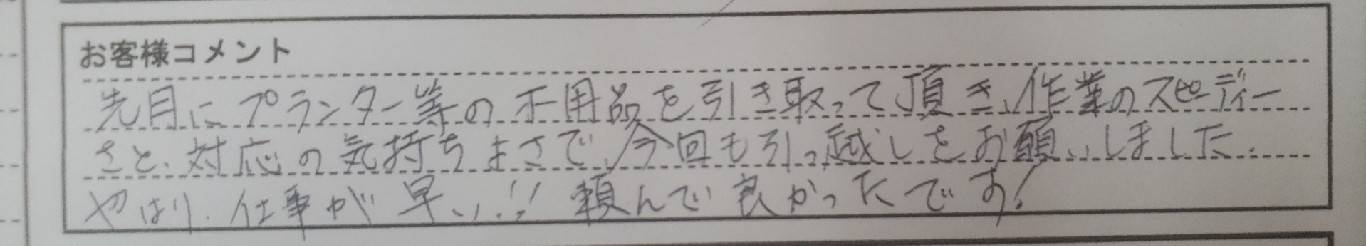 お客様コメント
先月にプランター等の不用品を引き取って頂き、作業のスピーディー
さと、対応の気持ちよさで、今回も引っ越しをお願いしました。
やはり、仕事が早い!! 頼んで良かったです!